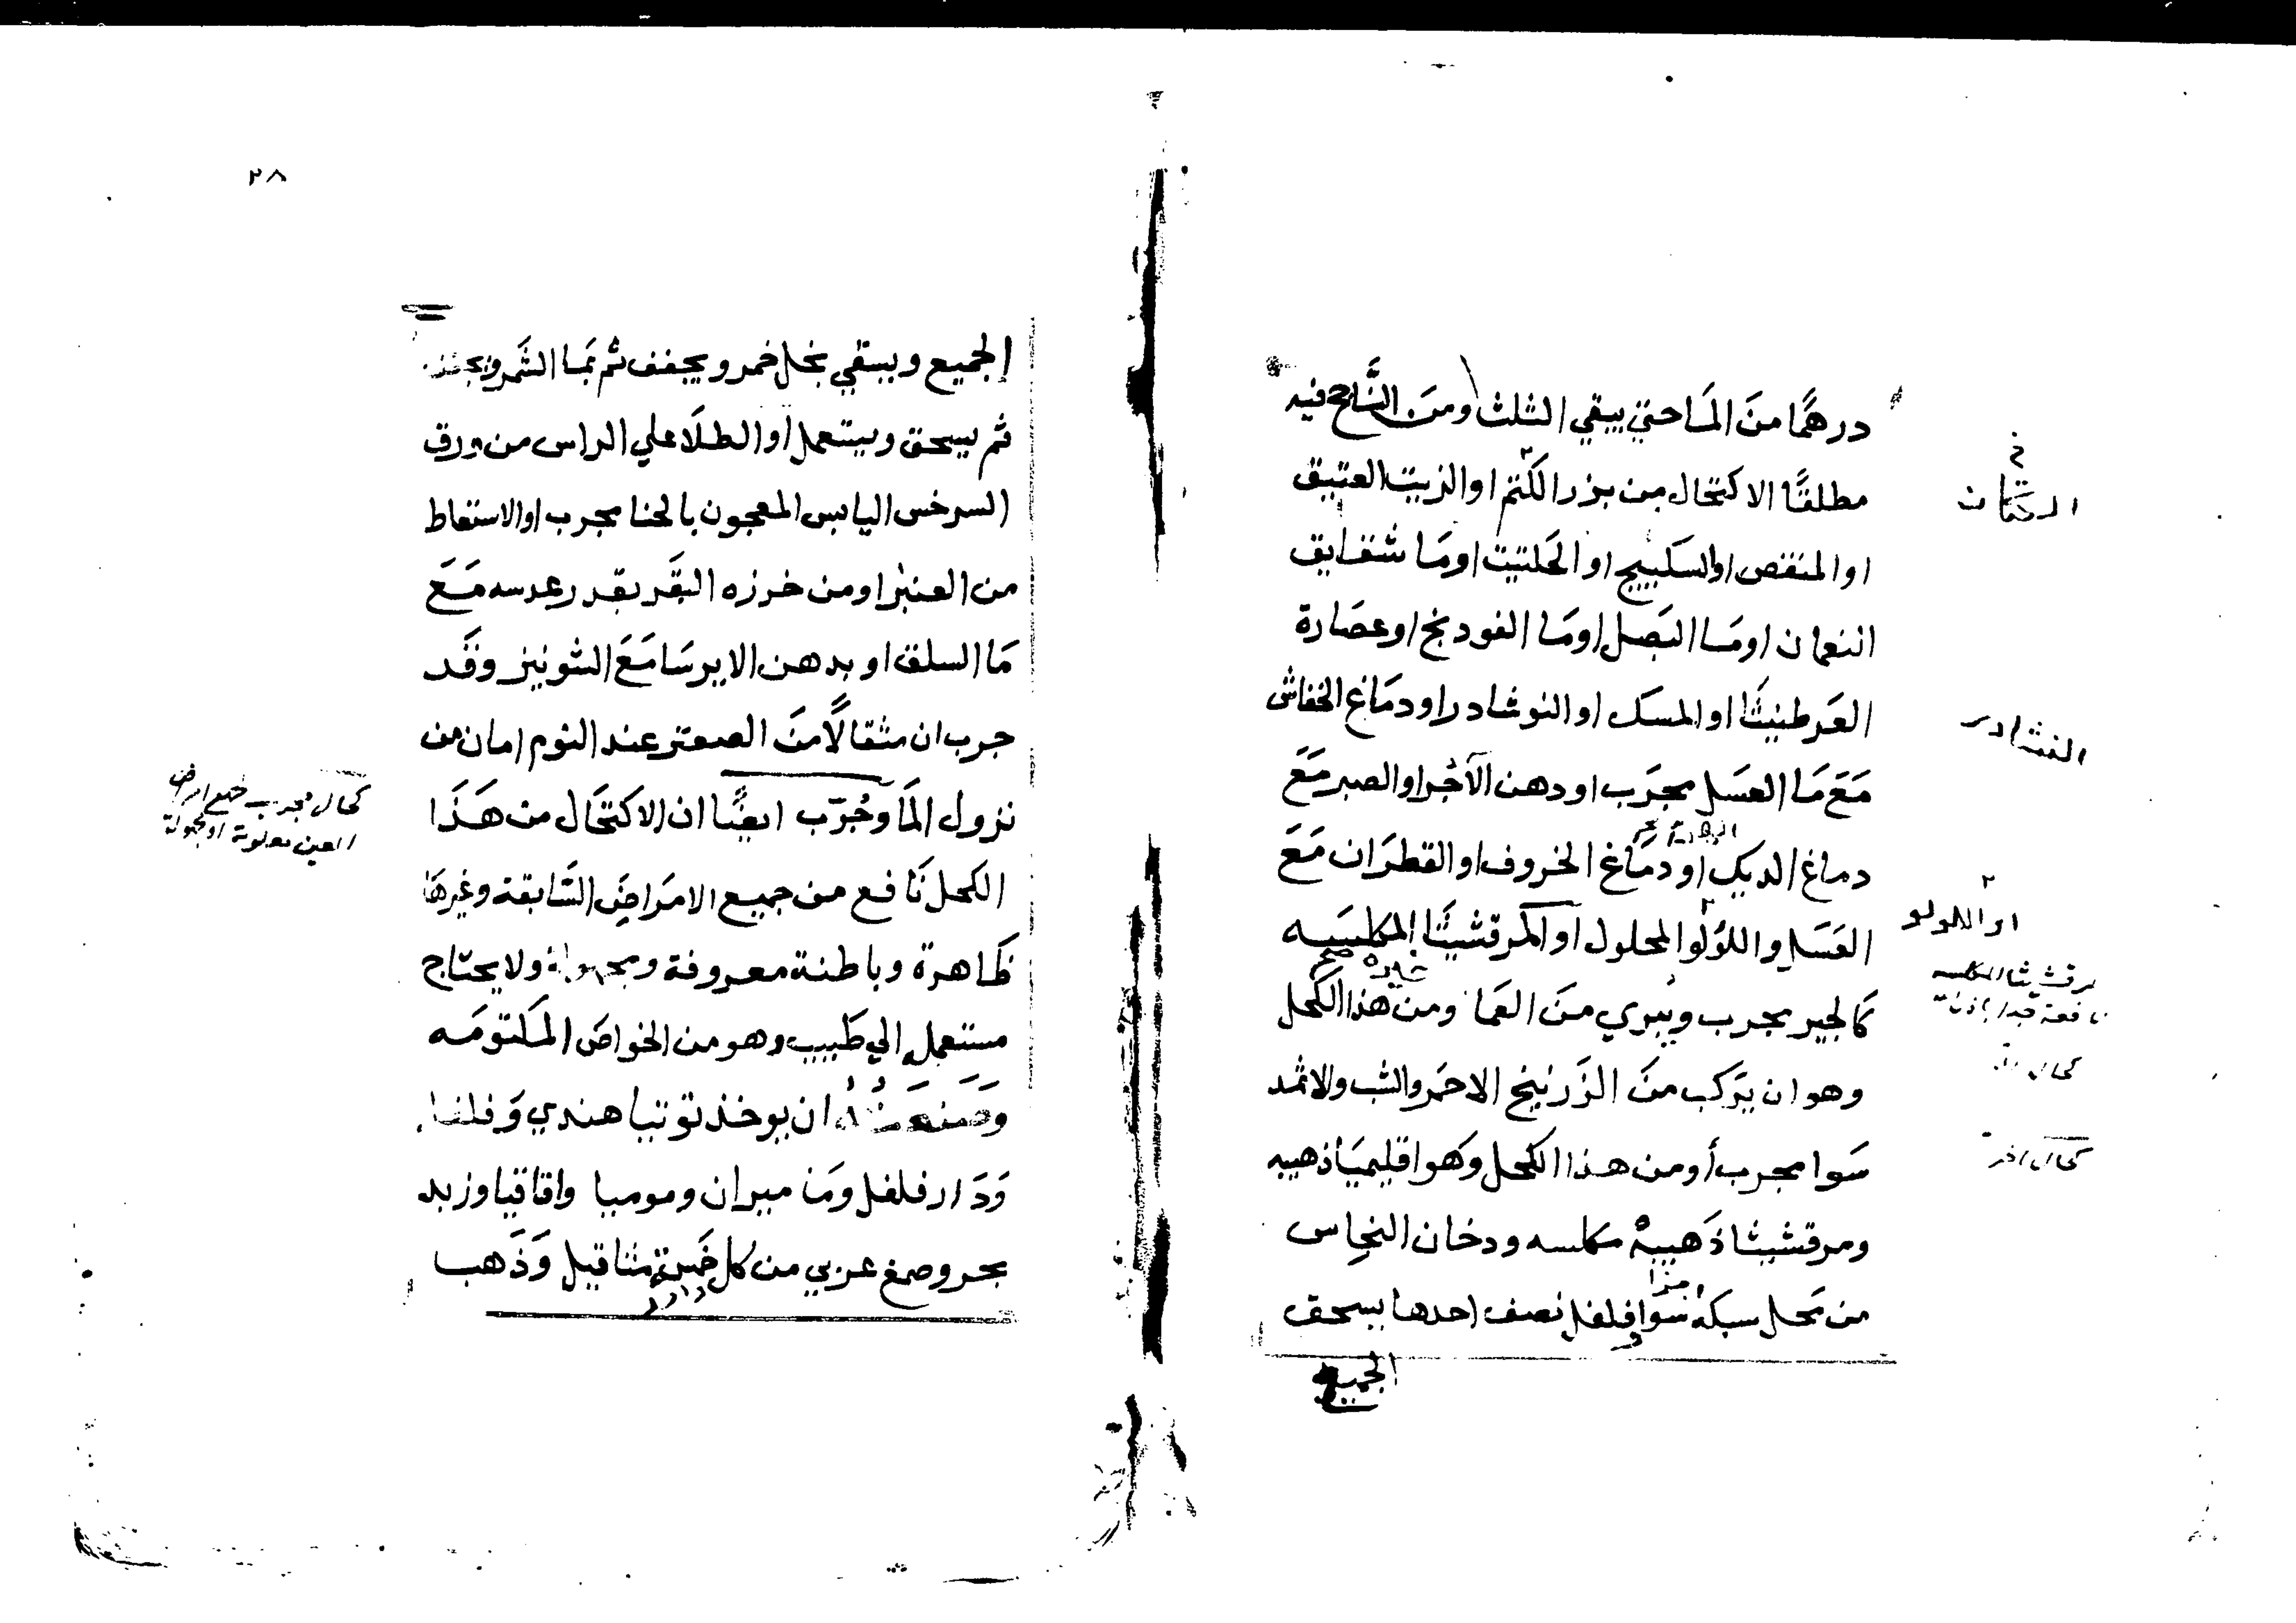 درهمًا منَ المَا حتي يبقي الثلث ومن النَّاجح فيه
مطلقًا الاكتحال من بزر الكَتم او الزيت العتيق
او المنقص او السكبينج او الحَلتيت او مَا شقايق
النعمان او مَا البَصل او مَا الفودنج او عصَارة
العَرطنيثَا او المسك او النوشادر او دمَاغ الخفاش
مَعَ مَا العسَل مجرَب او دهن الآجُر او الصبر مَعَ
دماغ الديك او دمَاغ الخروف او القطرَان مَعَ
العَسَل واللؤلُو المحلول او المَرقشيثَا المكلسَه
كالجير مجرب ويبري منَ العَمَا ومن هذا الكَحل
وهو ان يَركب منَ الزَرنيخ الاحمَر والشب والاثمد
سَوا مجرب أو من هذا الكحل وَهو اقليميَا ذهبيه
ومرقشيثا ذَهبيهْ مكلسه ودخان النحِاس
من محَل سبكهْ سوا فلفل نصف احدها يسحق
الجميع
في
الكتمان
النشادر
او اللولو
مرقشيثا المكلسه
كحال
كحال اخر
٢٨
الجميع ويسقي بخل خمر ويجفف ثم بمَا الشمَر ويجفف
ثم يسحق ويستعمل او الطلَا علي الراس من ورق
السرخس اليابس المعجون بالحنا مجرب او الاستعاط
من العنبر او من خرزه البقَر بقدر عدسه مَعَ
مَا السلق او بدهن الايرسَا مَعَ الشونيز وقَد
جرب ان مثقالًا منَ الصعتر عند النوم امان من
نزول المَا وَجُرّب ايضًا ان الاكتحَال من هَذَا
الكحل نَافع من جميع الامرَاضِ السَّابقة وغيرهَا
ظَاهرة وباطنة معروفة ومجهولة ولا يحتَاج
مستعمله الي طَبيب وهو من الخواصَ المَكتومَه
وَصَنعَتُهُ ان يوخذ توتيا هندي وَفلفل
وَدَار فلفل ومَاميران وموميا واقاقيا وزبد
بحر وصمغ عزبي من كل خَمسة مثاقيل وَذَهب
كحال مجرب جميع امراض
العين معلومة او مجهولة